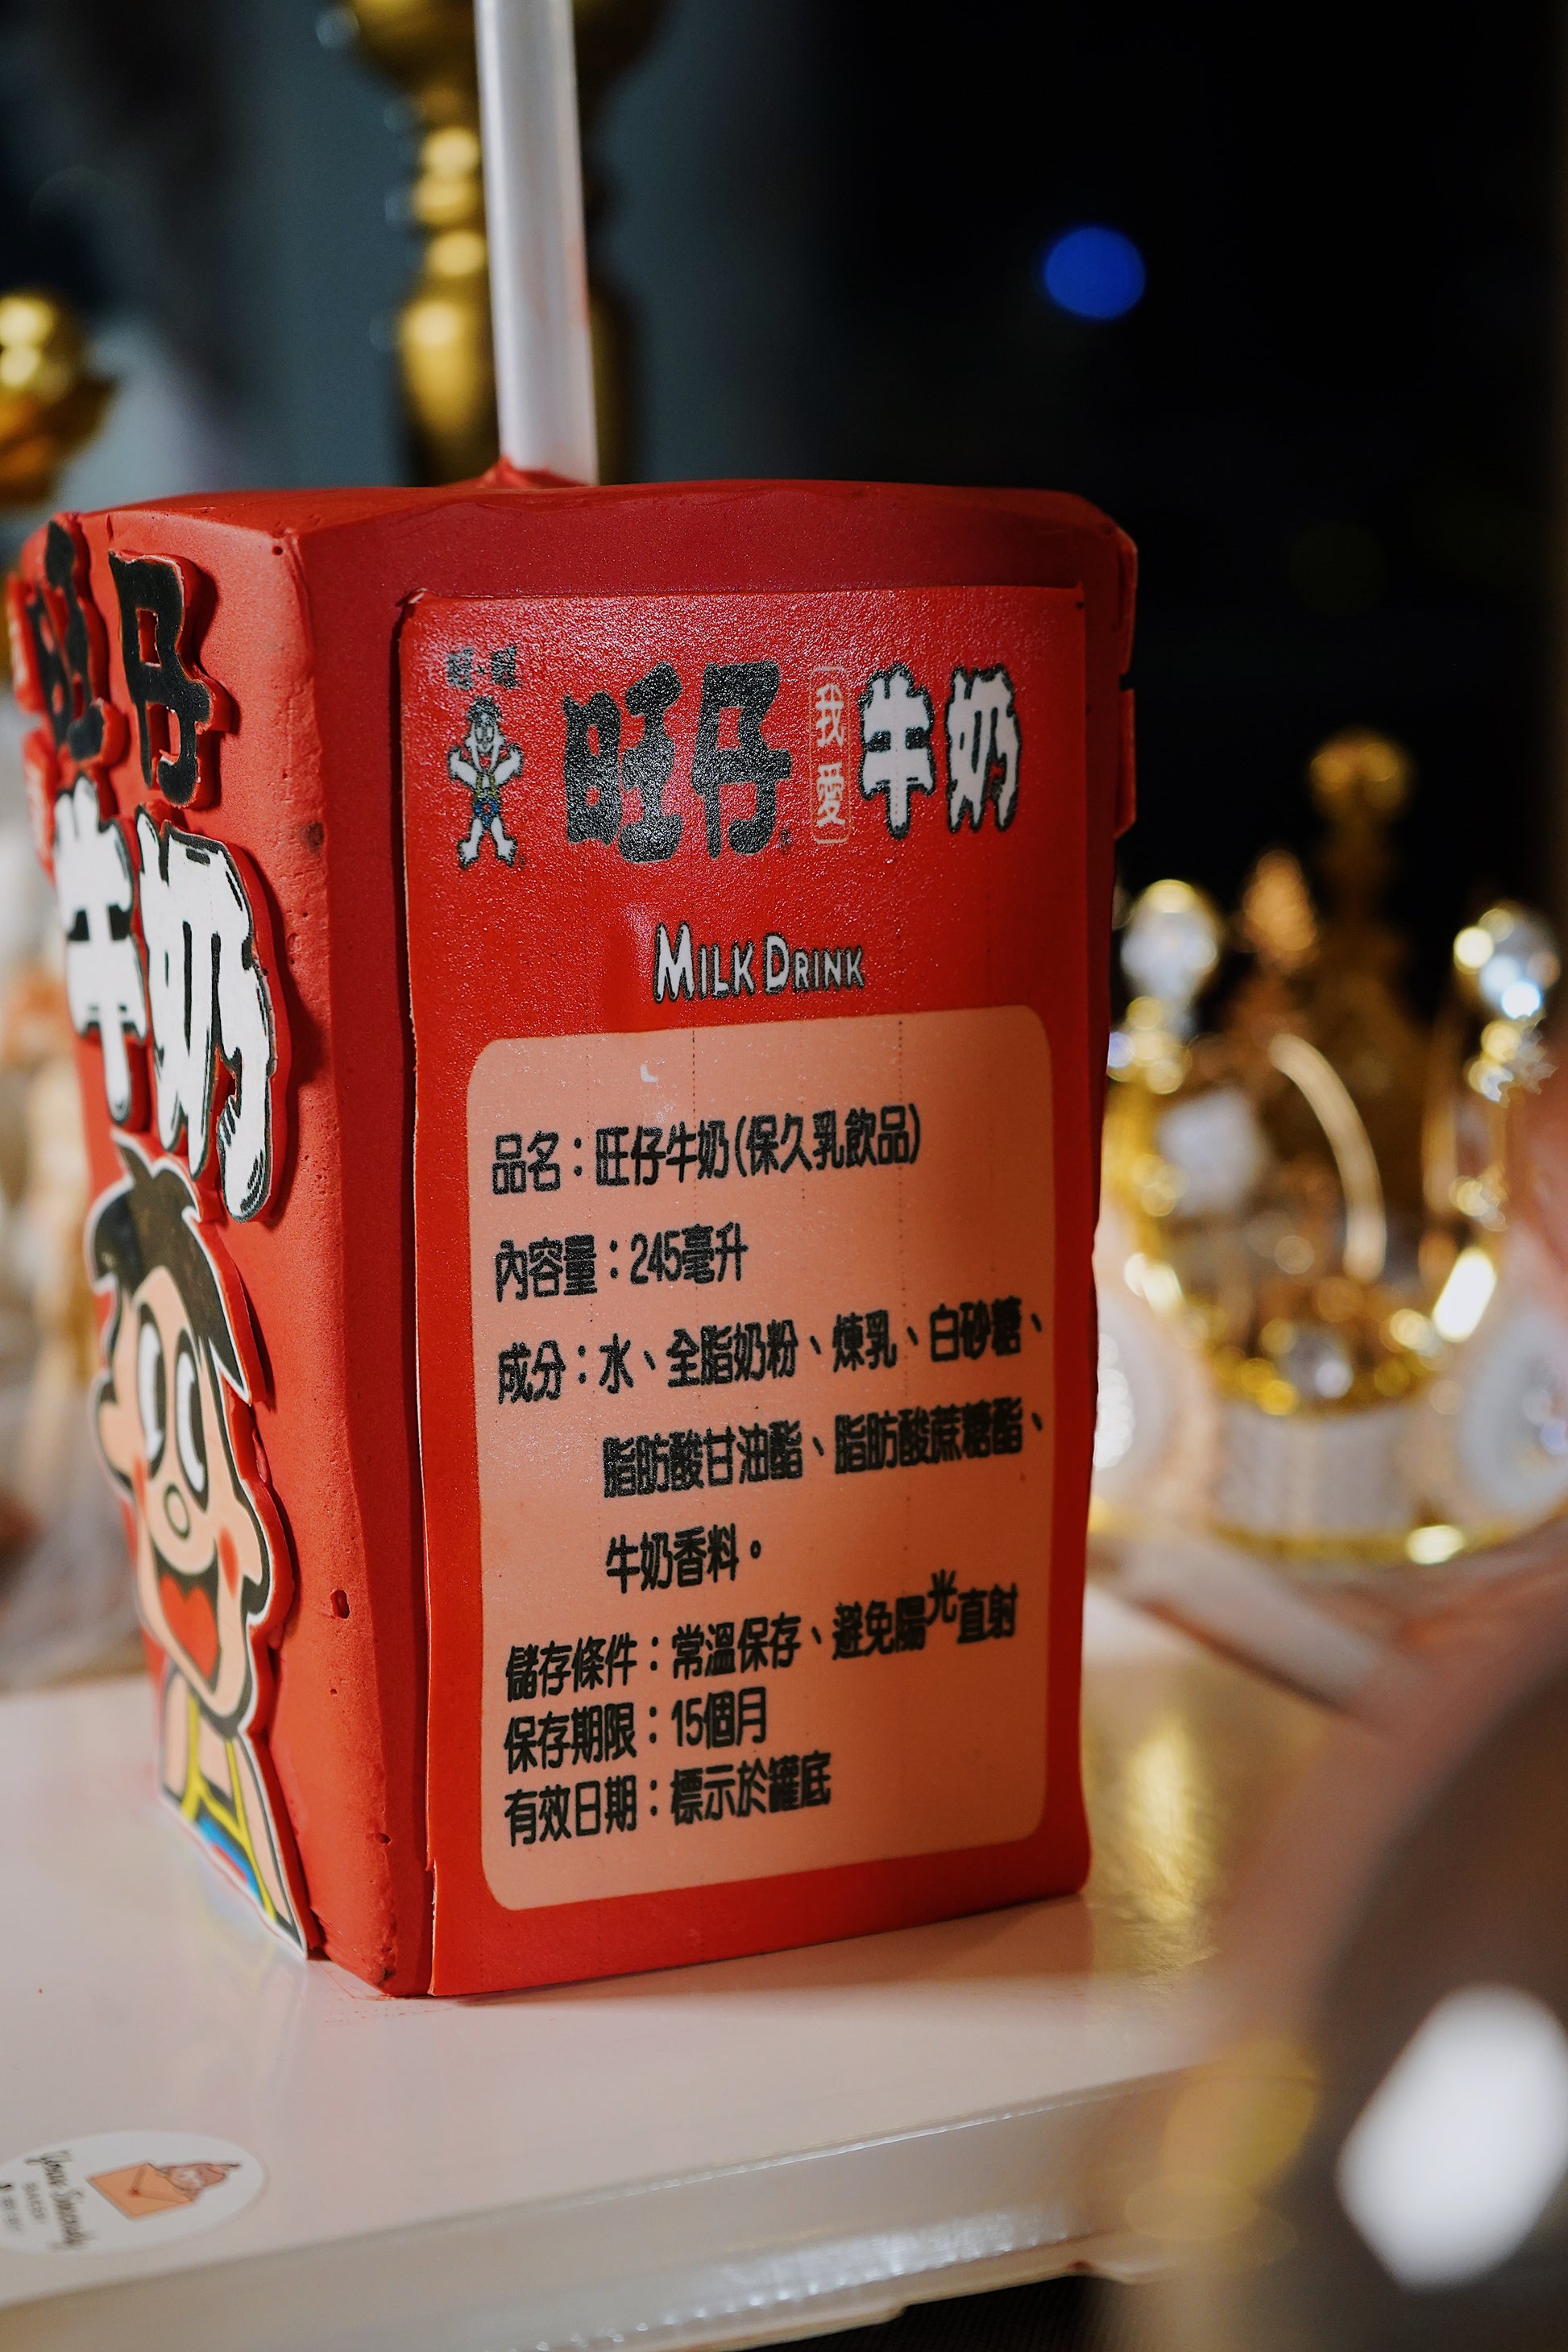 旺仔
牛奶
旺旺
旺仔 我愛 牛奶
MILK DRINK
品名：旺仔牛奶(保久乳飲品)
內容量：245毫升
成分：水、全脂奶粉、煉乳、白砂糖、
脂肪酸甘油酯、脂肪酸蔗糖酯、
牛奶香料。
儲存條件：常溫保存、避免陽光直射
保存期限：15個月
有效日期：標示於罐底
Your Sincerely